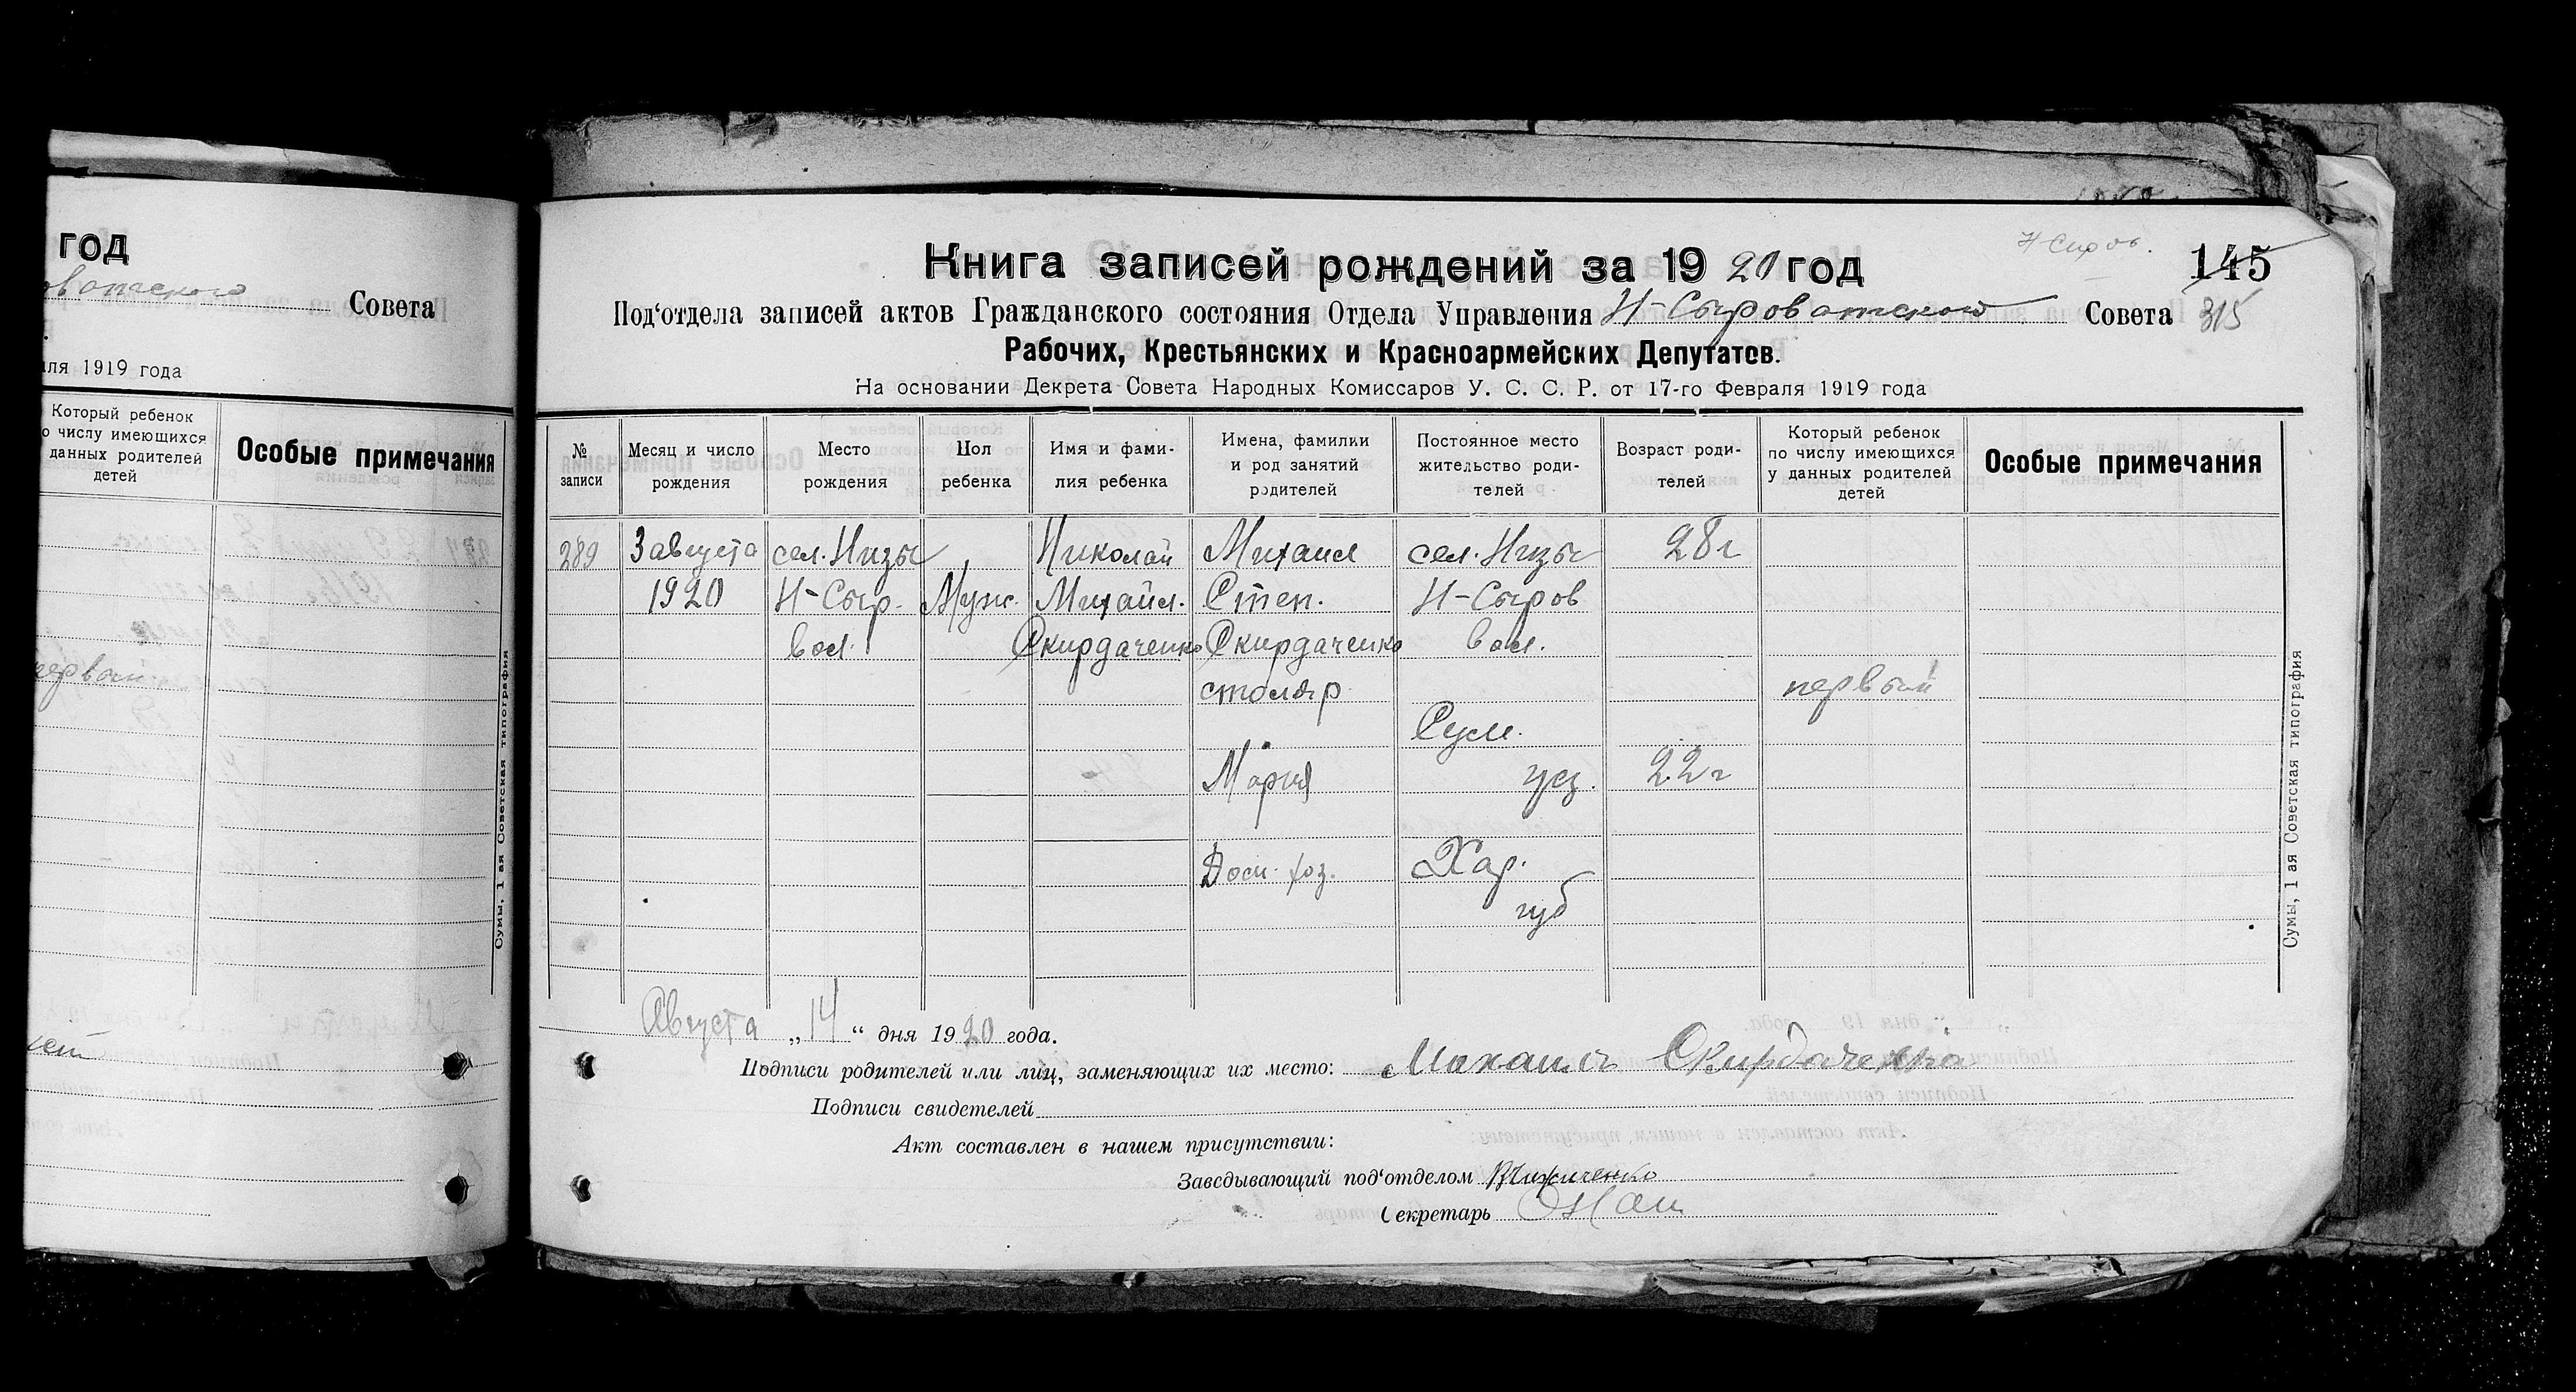 год
Совета
1919 года
Который ребенок
о числу имеющихся
данных родителей
детей
Особые примечания
Сумы, 1 ая Советская типография
Н-Сыров.
145
Книга записей рождений за 1920 год
315
Под'отдела записей актов Гражданского состояния Отдела Управления Н-Сыроватского Совета
Рабочих, Крестьянских и Красноармейских Депутатов.
На основании Декрета Совета Народных Комиссаров У. С. С. Р. от 17-го Февраля 1919 года
№ записи
Месяц и число рождения
Место рождения
Пол ребенка
Имя и фами-
лия ребенка
Имена, фамилии
и род занятий
родителей
Постоянное место
жительство роди-
телей
Возраст роди-
телей
Который ребенок
по числу имеющихся
у данных родителей
детей
Особые примечания
289 3 августа сел. Низы Николай Михаил сел. Низы 28 г
1920 Н-Сыр. Муж. Михайл. Степ. Н-Сыров
вол. Скирдаченко Скирдаченко вол.
столяр первый
Сум.
Мария уез. 22 г
Дом. хоз. Хар.
губ
Августа „14“ дня 1920 года.
Подписи родителей или лиц, заменяющих их место: Михаил Скирдаченко
Подписи свидетелей
Акт составлен в нашем присутствии:
Заведывающий под'отделом
Секретарь
Сумы, 1 ая Советская типография